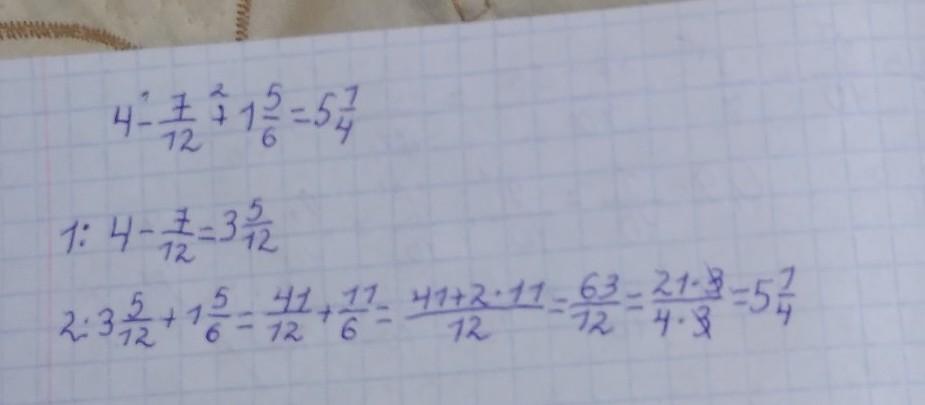 4 - 7/12 + 1 5/6 = 5 1/4
1: 4 - 7/12 = 3 5/12
2: 3 5/12 + 1 5/6 = 41/12 + 11/6 = (41+2·11)/12 = 63/12 = (21·3)/(4·3) = 5 1/4